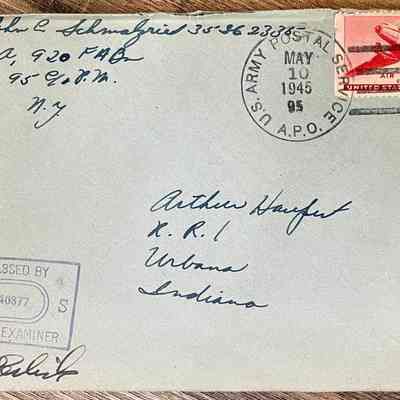 ohn C Schmalzried 35-362335
A, 920 F A Bn
95 % P.M.
N.Y
U.S. ARMY POSTAL SERVICE
MAY
10
1945
95
A.P.O.
AIR
UNITED STATES
Arthur
R. R. 1
Urbana
Indiana
SSED BY
40877
S
EXAMINER